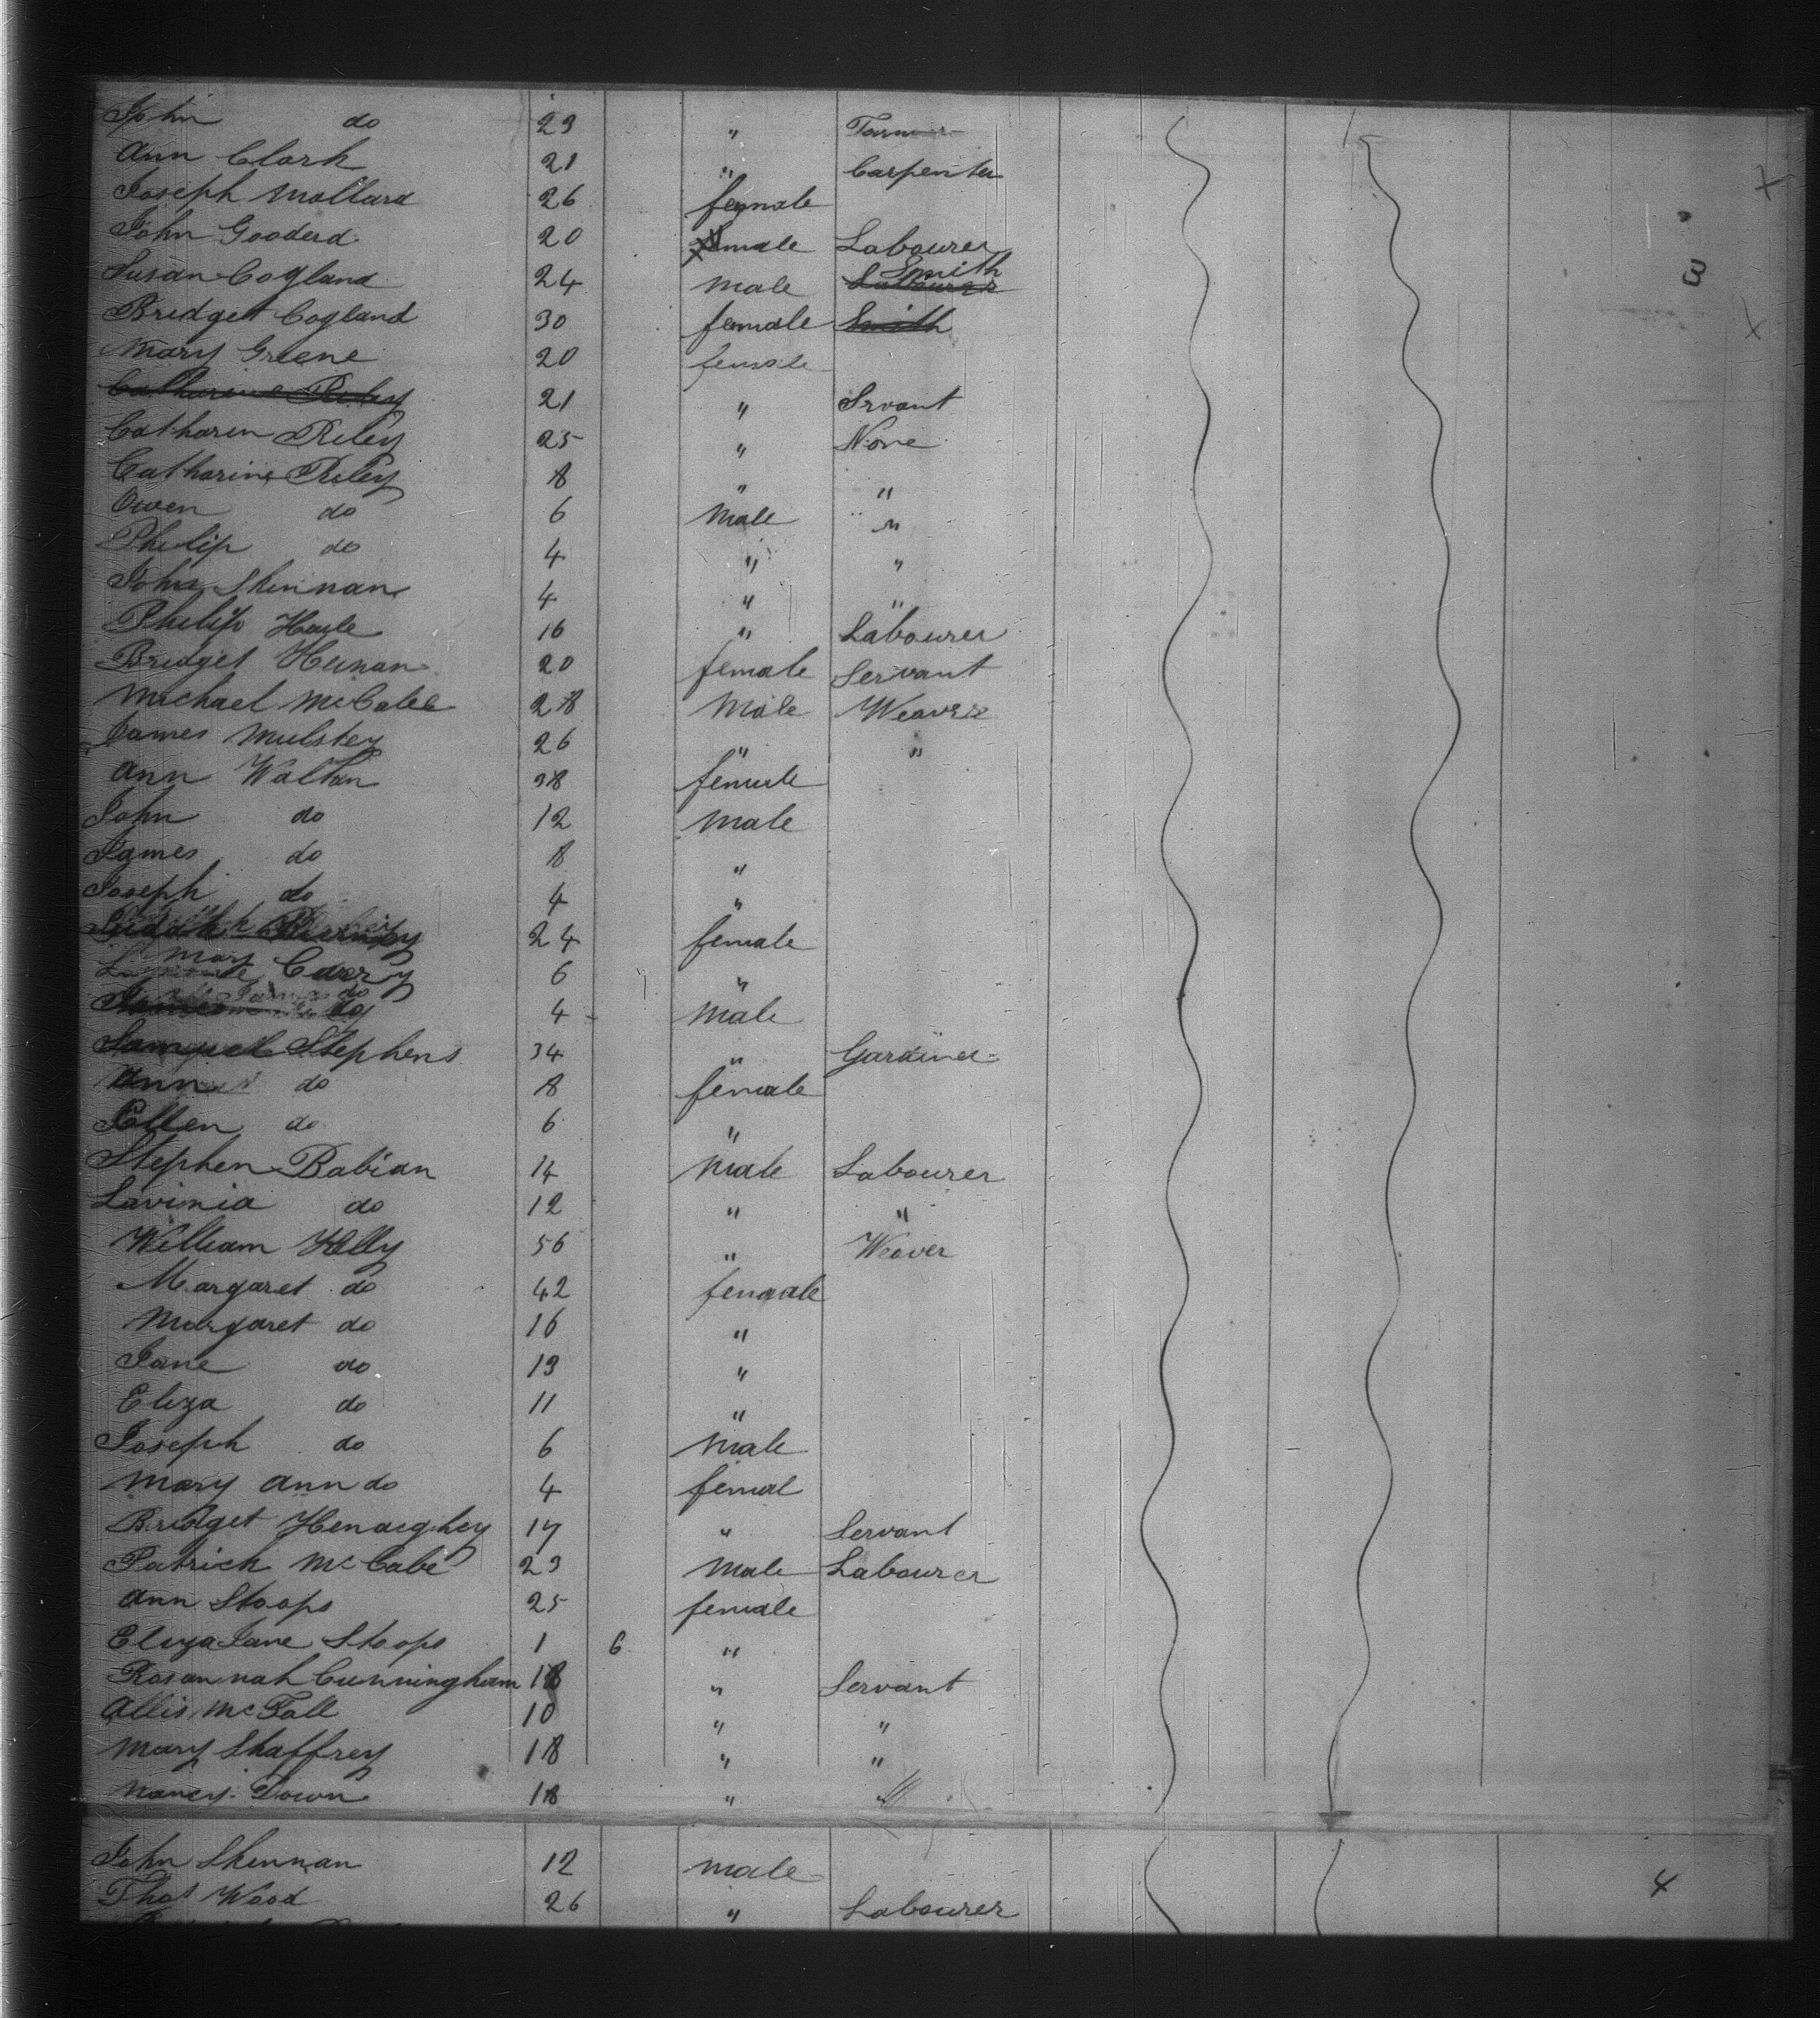 John do 23 " Farmer
Ann Clark 21 " Carpenter
Joseph Mallard 26 female
John Gooderd 20 male Labourer
Susan Cogland 24 male Smith
Bridget Cogland 30 female Smith
Mary Greene 20 female
Catharine Riley 21 " Srvant
Catharen Riley 25 " None
Catharine Riley 8 " "
Owen do 6 Male "
Philip do 4 " "
John Shennan 4 " "
Philip Hoyle 16 " Labourer
Bridget Heinan 20 female Servant
Michael McCalee 28 Male Weaver
James Mulstey 26 " "
Ann Waltan 38 female
John do 12 male
James do 8 "
Joseph do 4 "
24 female
Mary Carry 6 "
James do 4 Male
Samuel Stephens 34 " Gardiner
Ann do 8 female
Ellen do 6 "
Stephen Babian 14 Male Labourer
Lavinia do 12 " "
William Kelly 56 " Weaver
Margaret do 42 female
Margaret do 16 "
Jane do 13 "
Eliza do 11 "
Joseph do 6 Male
Mary Ann do 4 femal
Bridget Henaeghey 17 " Servant
Patrick McCabe 23 Male Labourer
Ann Stoops 25 female
Eliza Jane Stoops 1 6 "
Rosannah Cunningham 18 " Servant
Allis McFall 10 " "
Mary Shaffrey 18 " "
Nancy Down 18 " "
John Shennan 12 male
Thos Wood 26 " Labourer
3
4